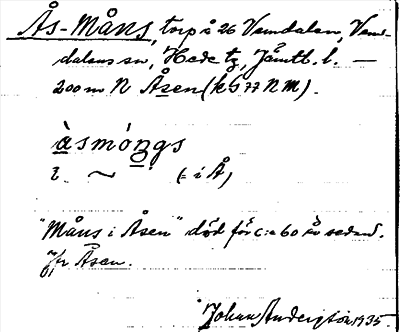 Ås-Måns, torp å 26 Vemdalen, Vem-
dalens sn, Hede tg, Jämtl. l. —
200 m N Åsen (k S 77 N M).
àsmóngs
i ~ (= i Å)
"Måns i Åsen" död för c:a 60 år sedan.
Jfr Åsen.
Johan Anderzson 1935.